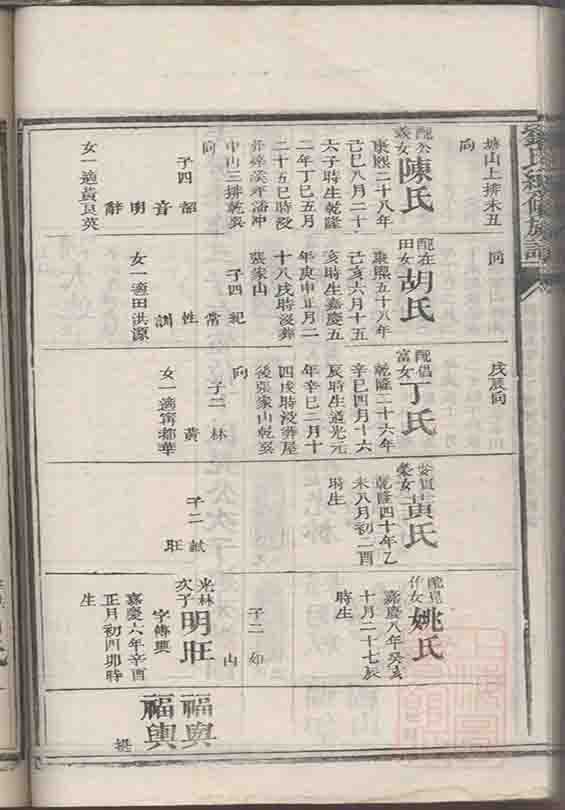 塘山上排未丑
向
配公義女陳氏
康熙二十八年
己巳八月二十
六子時生乾隆
二年丁巳五月
二十五巳時歿
中山三排乾巽
向
子四
韶
音
明
辭
女一適黃良英
向
配在田女胡氏
康熙五十八年
己亥六月十五
亥時生嘉慶五
年庚申正月二
十八戌時歿葬
張家山
子四
紀
常
性
訓
女一適田洪源
戌辰向
配倡富女丁氏
乾隆二十六年
辛巳四月十六
辰時生道光元
年辛巳二月十
四戌時歿葬屋
後張家山乾巽
向
子二
林
黃
女一適甯都華
黃氏
乾隆四十年乙
未八月初二酉
時生
子二
猷
旺
姚氏
嘉慶八年癸亥
十月二十七辰
時生
子二
如
山
光林次子明旺
字傳興
嘉慶六年辛酉
正月初四卯時
生
福興
福輿